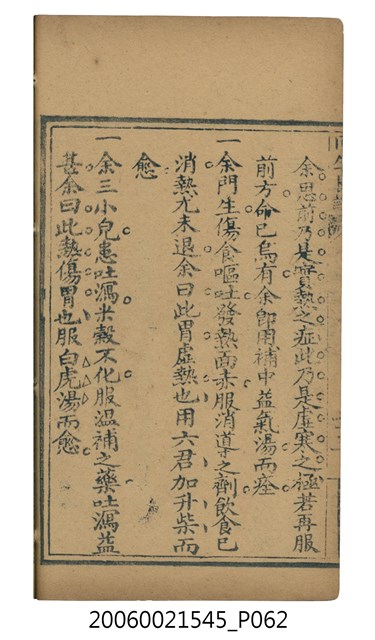 余思前乃是實熱之症此乃是虛寒之極若再服
前方命已烏有余即用補中益氣湯而痊
一余門生傷食嘔吐發熱面赤服消導之劑飲食已
消熱尤未退余曰此胃虛熱也用六君加升柴而
愈
一余三小兒患吐瀉米穀不化服温補之藥吐瀉益
甚余曰此熱傷胃也服白虎湯而愈
20060021545_P062